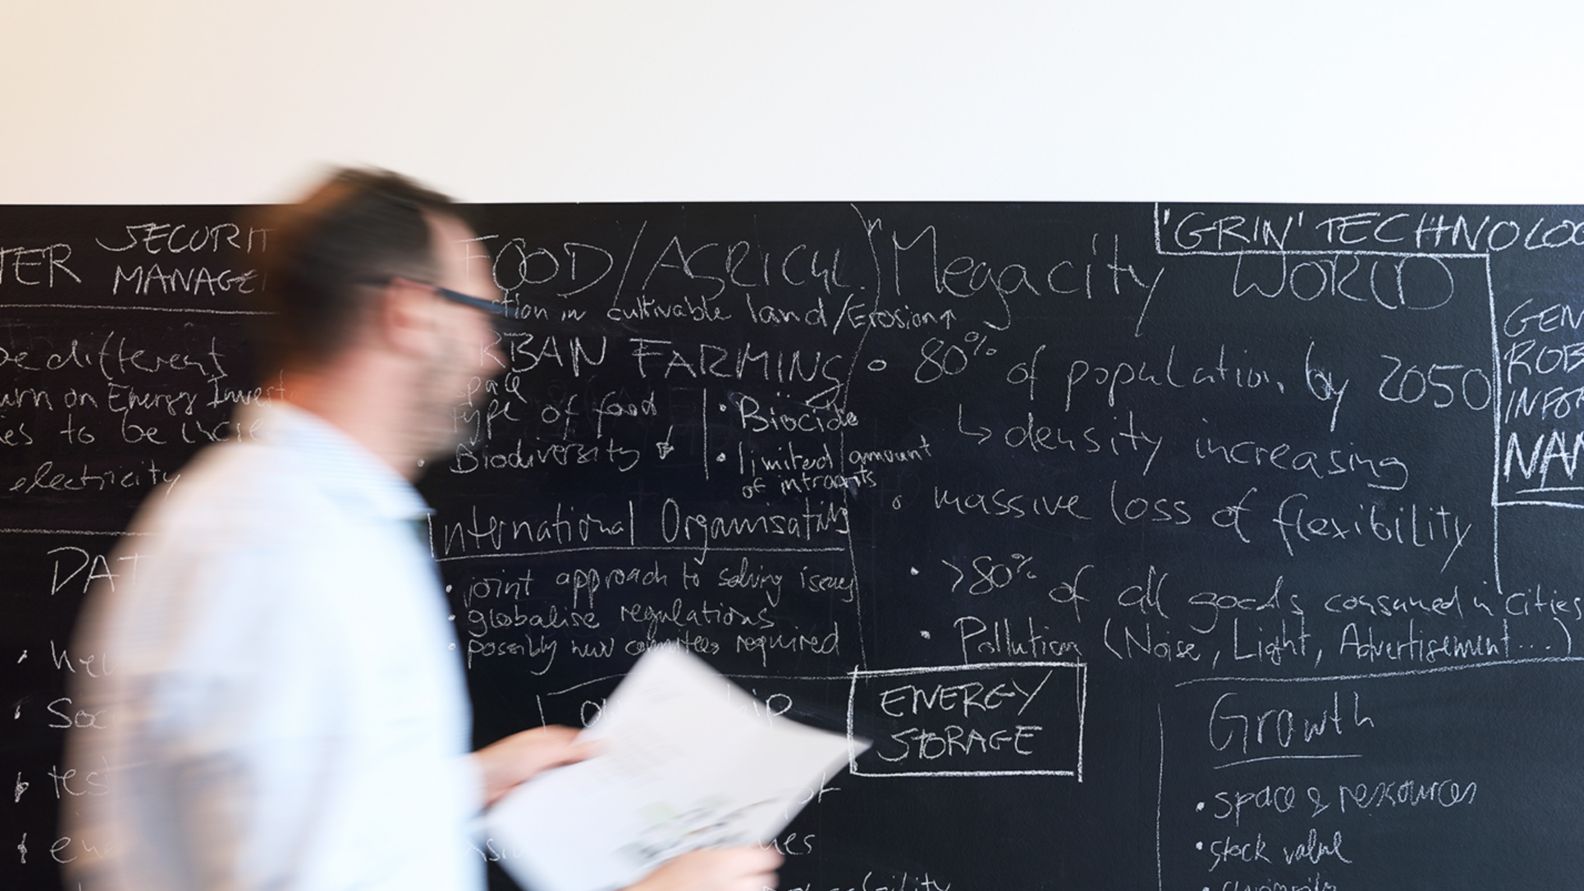 TER SECURIT
MANAGE
be different
urn on Energy Invest
es to be incre
electricity
DAT
test
FOOD/AGRICUL.
tion in cultivable land/Erosion
URBAN FARMING
type of food
Biodiversity
• Biocide
• limited amount
of intrants
International Organisation
• joint approach to solving issues
• globalise regulations
• possibly new commitees required
ip
ues
"Megacity WORLD
• 80% of population by 2050
↳ density increasing
• massive loss of flexibility
• >80% of all goods consumed in cities
• Pollution (Noise, Light, Advertisement...)
ENERGY
STORAGE
Growth
• space & ressources
• stock value
'GRIN' TECHNOLOG
GEN
ROB
INFOR
NAN